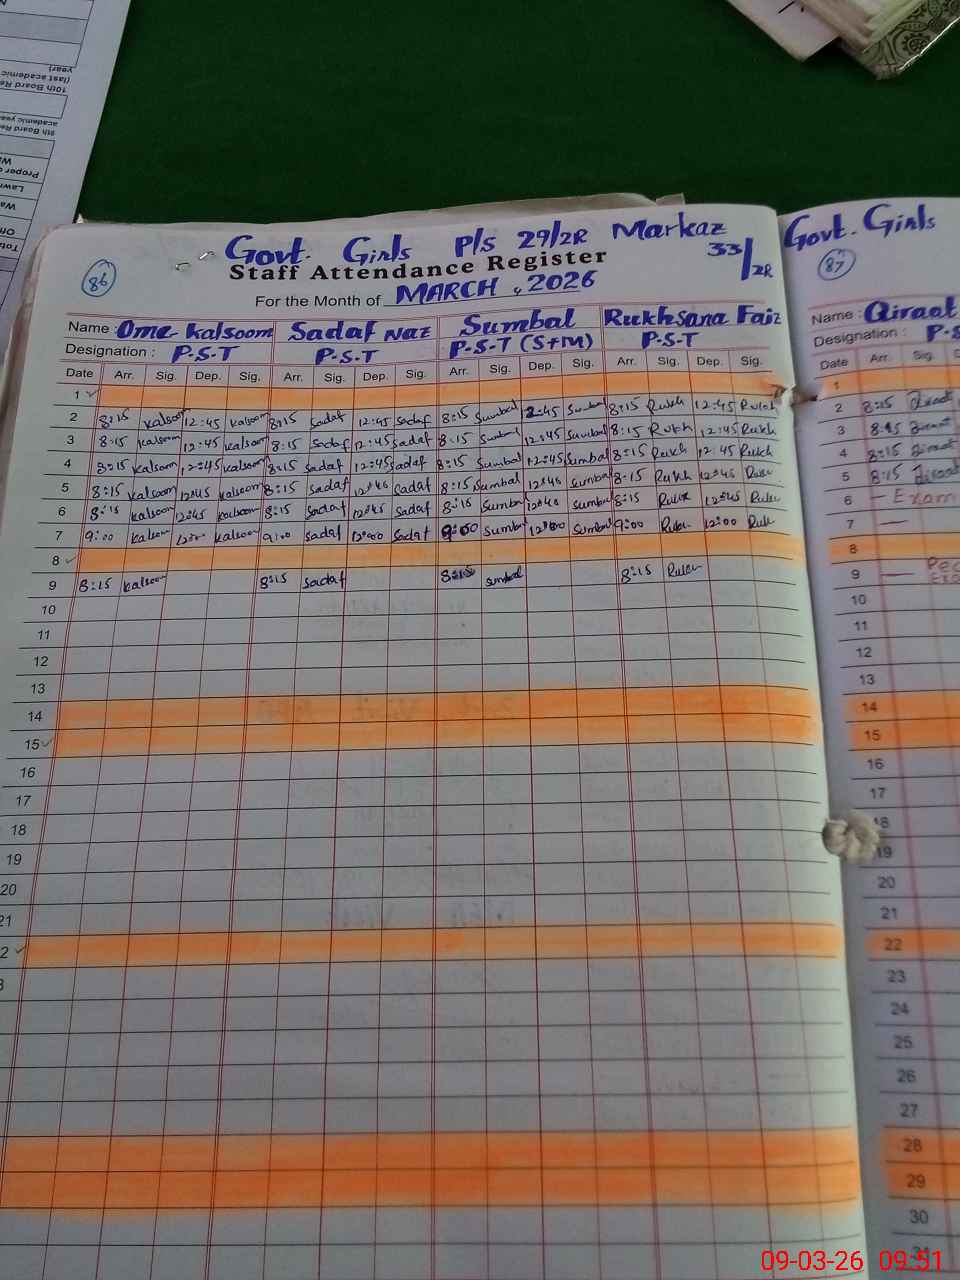 Govt. Girls P/S 29/2R Markaz 33/2R
86
Staff Attendance Register
For the Month of MARCH, 2026
Name: Ome Kalsoom Sadaf Naz Sumbal Rukhsana Faiz
Designation: P.S.T P.S.T P.S.T (S+M) P.S.T
Date Arr. Sig. Dep. Sig. Arr. Sig. Dep. Sig. Arr. Sig. Dep. Sig. Arr. Sig. Dep. Sig.
1
2 8:15 kalsoom 12:45 kalsoom 8:15 sadaf 12:45 sadaf 8:15 sumbal 12:45 Sumbal 8:15 Rukh 12:45 Rukh
3 8:15 kalsoom 12:45 kalsoom 8:15 sadaf 12:45 sadaf 8:15 Sumbal 12:45 Sumbal 8:15 Rukh 12:45 Rukh
4 8:15 kalsoom 12:45 kalsoom 8:15 sadaf 12:45 sadaf 8:15 Sumbal 12:45 Sumbal 8:15 Rukh 12:45 Rukh
5 8:15 kalsoom 12:45 kalsoom 8:15 sadaf 12:45 Sadaf 8:15 Sumbal 12:45 sumbal 8:15 Rukh 12:45
6 8:15 kalsoom 12:45 kalsoom 8:15 sadaf 12:45 Sadaf 8:15 Sumbal 12:45 sumbal 8:15 12:45
7 9:00 kalsoom kalsoom 9:00 sadaf 12:00 Sadaf 9:00 sumbal 12:00 Sumbal 9:00 12:00
8
9 8:15 kalsoom 8:15 sadaf 8:15 sumbal 8:15
10
11
12
13
14
15
16
17
18
19
20
21
2
3
Govt. Girls
87
Name: Qiraat
Designation: P.S
Date Arr. Sig.
1
2 8:15 Qiraat
3 8:15 Qiraat
4 8:15 Qiraat
5 8:15 Qiraat
6 — Exam
7 —
8
9 —
10
11
12
13
14
15
16
17
18
19
20
21
22
23
24
25
26
27
28
29
30
31
(last academic
year)
10th Board Re
9th Board Re
academic yea
Proper
09-03-26 09:51